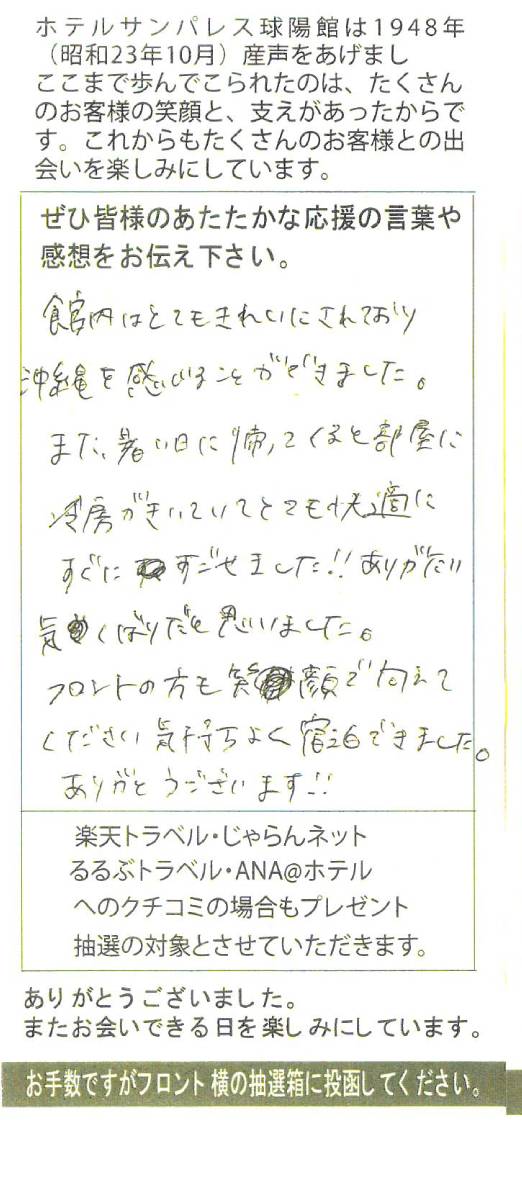 ホテルサンパレス球陽館は1948年
（昭和23年10月）産声をあげまし
ここまで歩んでこられたのは、たくさん
のお客様の笑顔と、支えがあったからで
す。これからもたくさんのお客様との出
会いを楽しみにしています。
ぜひ皆様のあたたかな応援の言葉や
感想をお伝え下さい。
館内はとてもきれいにされており
沖縄を感じることができました。
また、暑い日に帰ってくると部屋に
冷房がきいていてとても快適に
すぐにすごせました!! ありがたい
気くばりだと思いました。
フロントの方も笑顔で向えて
ください気持ちよく宿泊できました。
ありがとうございます!!
楽天トラベル・じゃらんネット
るるぶトラベル・ANA@ホテル
へのクチコミの場合もプレゼント
抽選の対象とさせていただきます。
ありがとうございました。
またお会いできる日を楽しみにしています。
お手数ですがフロント横の抽選箱に投函してください。